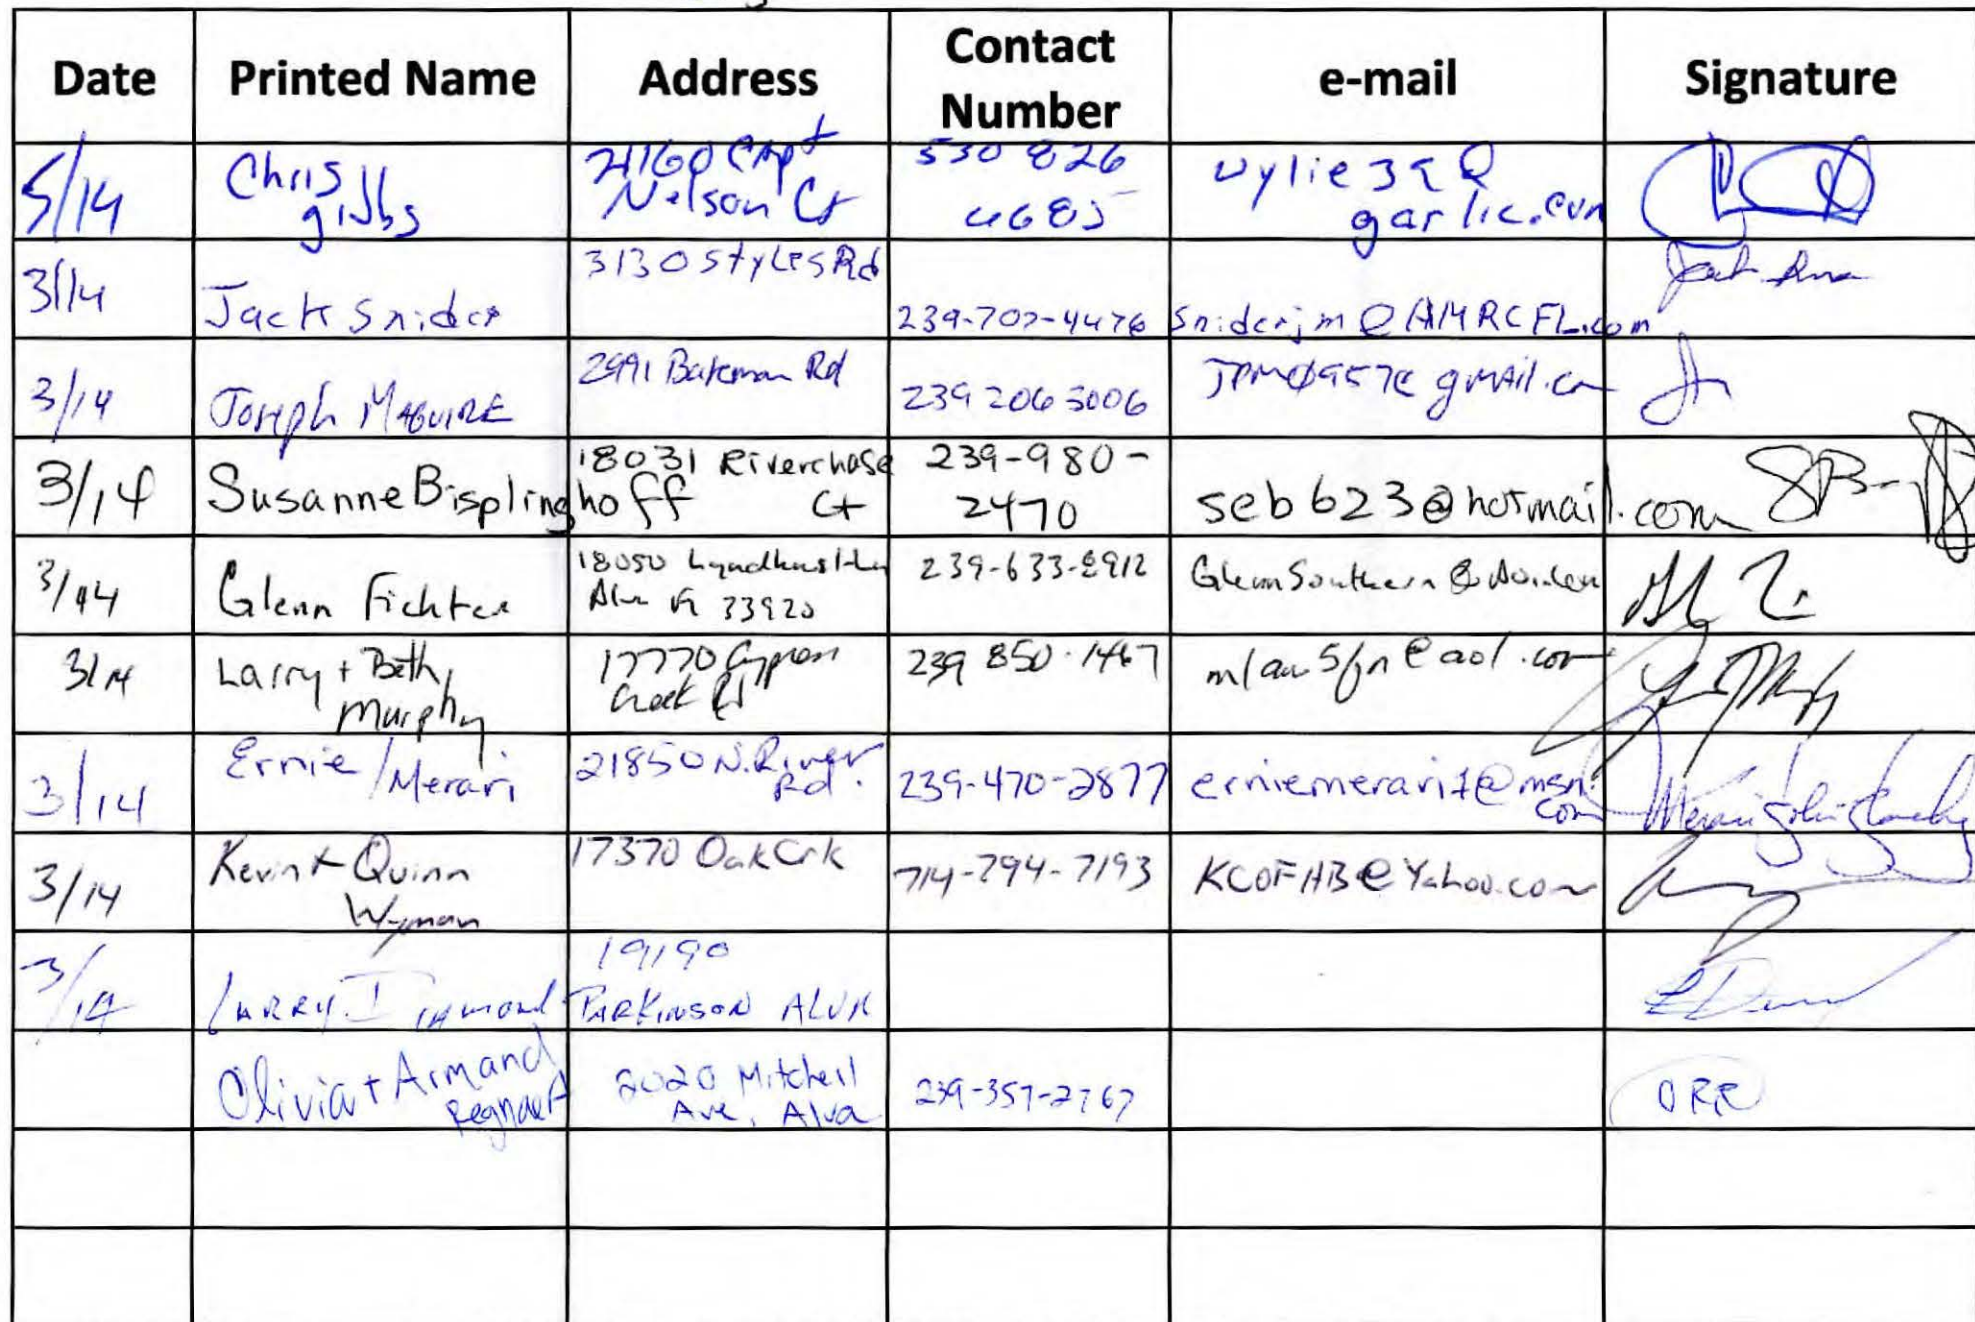 Date Printed Name Address Contact Number e-mail Signature
5/14 Chris gibbs 21160 Capt Nelson Ct 530 826 4685 garlic.com
3/14 Jack Snider 3130 Styles Rd 239-707-4476 Sniderjm@AMRCFL.com
3/14 Joseph MAGUIRE 2991 Bateman Rd 239 206 3006 JPM0957@gmail.com
3/14 Susanne Bisplinghoff 18031 Riverchase Ct 239-980-2470 seb623@hotmail.com SB
3/14 Glenn Fichter 18050 Lyndhurst Ln Alva Fl 33920 239-633-8912 Glenn Southern @
3/14 Larry + Beth Murphy 17770 Cypress Creek Rd 239 850-1467 @aol.com
3/14 Ernie/Merari 21850 N. River Rd. 239-470-2877 erniemerari1@msn.com
3/14 Kevin + Quinn Wyman 17370 Oak Crk 714-794-7193 KCOFHB@Yahoo.com
3/14 LARRY DIAMOND 19190 PARKINSON ALVA
Olivia + Armand 2020 Mitchell Ave, Alva 239-357-2767 ORR